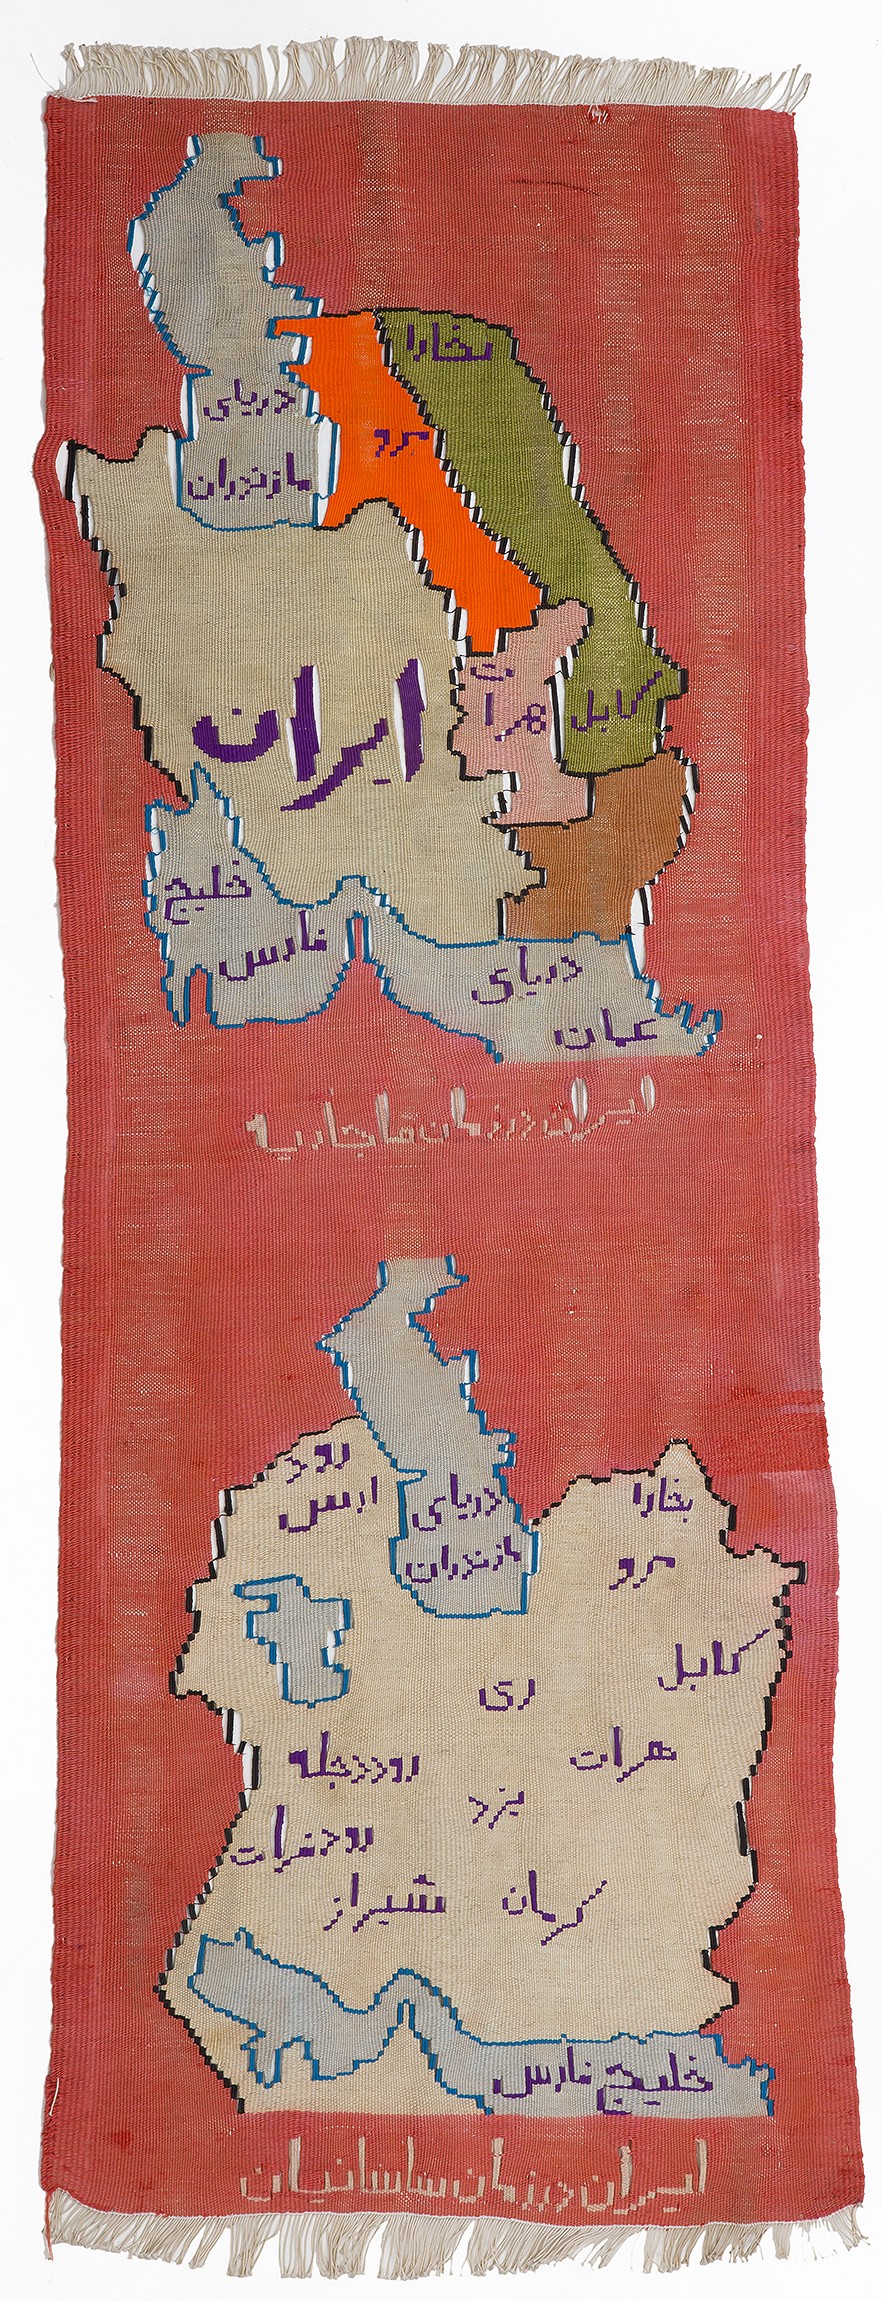 بخارا
دریای
مازندران
مرو
هرات
کابل
ایران
خلیج
فارس
دریای
عمان
ایران در زمان قاجاریه
رود
ارس
دریای
مازندران
بخارا
مرو
کابل
ری
هرات
رود دجله
یزد
رود فرات
شیراز
کرمان
خلیج فارس
ایران در زمان ساسانیان